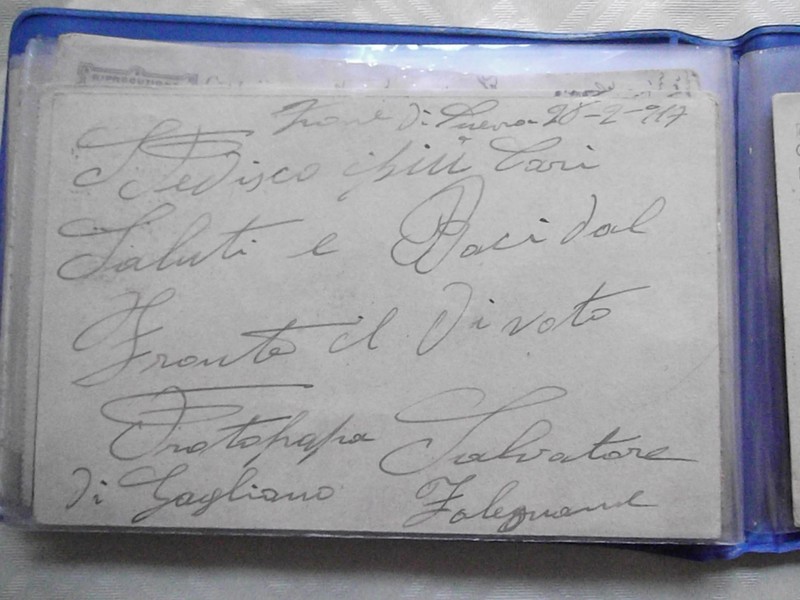 Di Guerra 28-2-917
Spedisco i più Cari
Saluti e Baci dal
Fronte il Divoto
Protopapa Salvatore
Di Gagliano Falegname